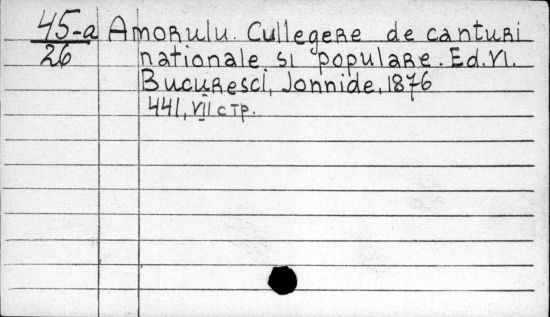 45-a Amorulu. Cullegere de canturi
26 nationale si populare. Ed. VI.
Bucuresci, Jonnide, 1876
441, VII стр.